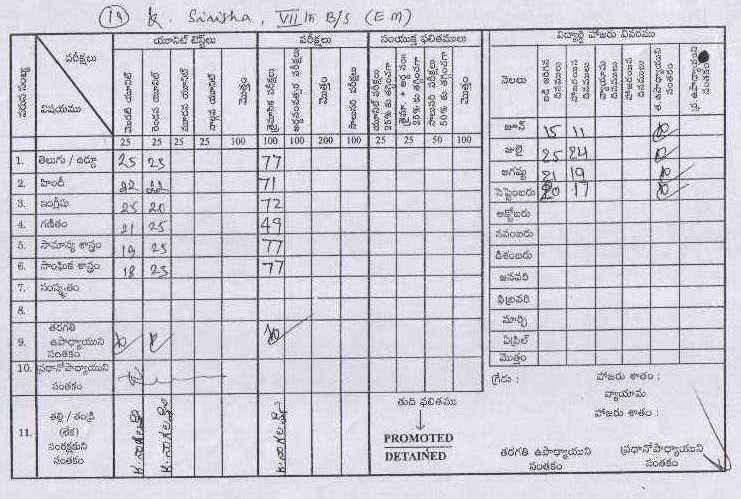 (19) K. Sirisha, VII th B/S (E M)
యూనిట్ టెస్ట్‌లు పరీక్షలు సంయుక్త ఫలితములు
వరుస సంఖ్య పరీక్షలు విషయము మొదటి యూనిట్ రెండవ యూనిట్ మూడవ యూనిట్ నాల్గవ యూనిట్ మొత్తం త్రైమాసిక పరీక్షలు అర్ధసంవత్సర పరీక్షలు మొత్తం సాలుసరి పరీక్షలు యూనిట్ పరీక్షలు 25% కు తగ్గించగా త్రైమా. + అర్ధ సం: 25% కు తగ్గించగా సాలుసరి పరీక్షలు 50% కు తగ్గించగా మొత్తం
25 25 25 25 100 100 100 200 100 25 25 50 100
1. తెలుగు / ఉర్దూ 25 23 77
2. హిందీ 22 22 71
3. ఇంగ్లీషు 25 20 72
4. గణితం 21 25 49
5. సామాన్య శాస్త్రం 19 25 77
6. సాంఘిక శాస్త్రం 18 23 77
7. సంస్కృతం
8.
9. తరగతి
ఉపాధ్యాయుని
సంతకం
10. ప్రధానోపాధ్యాయుని
సంతకం
11. తల్లి / తండ్రి
(లేక)
సంరక్షకుని
సంతకం
తుది ఫలితము
PROMOTED
DETAINED
విద్యార్థి హాజరు వివరము
నెలలు
జూన్ 15 11
జులై 25 24
ఆగష్టు 21 19
సెప్టెంబరు 20 17
అక్టోబరు
నవంబరు
డిశంబరు
జనవరి
ఫిబ్రవరి
మార్చి
ఏప్రిల్
మొత్తం
గ్రేడు : హాజరు శాతం :
వ్యాయామ
హాజరు శాతం :
తరగతి ఉపాధ్యాయుని ప్రధానోపాధ్యాయుని
సంతకం సంతకం